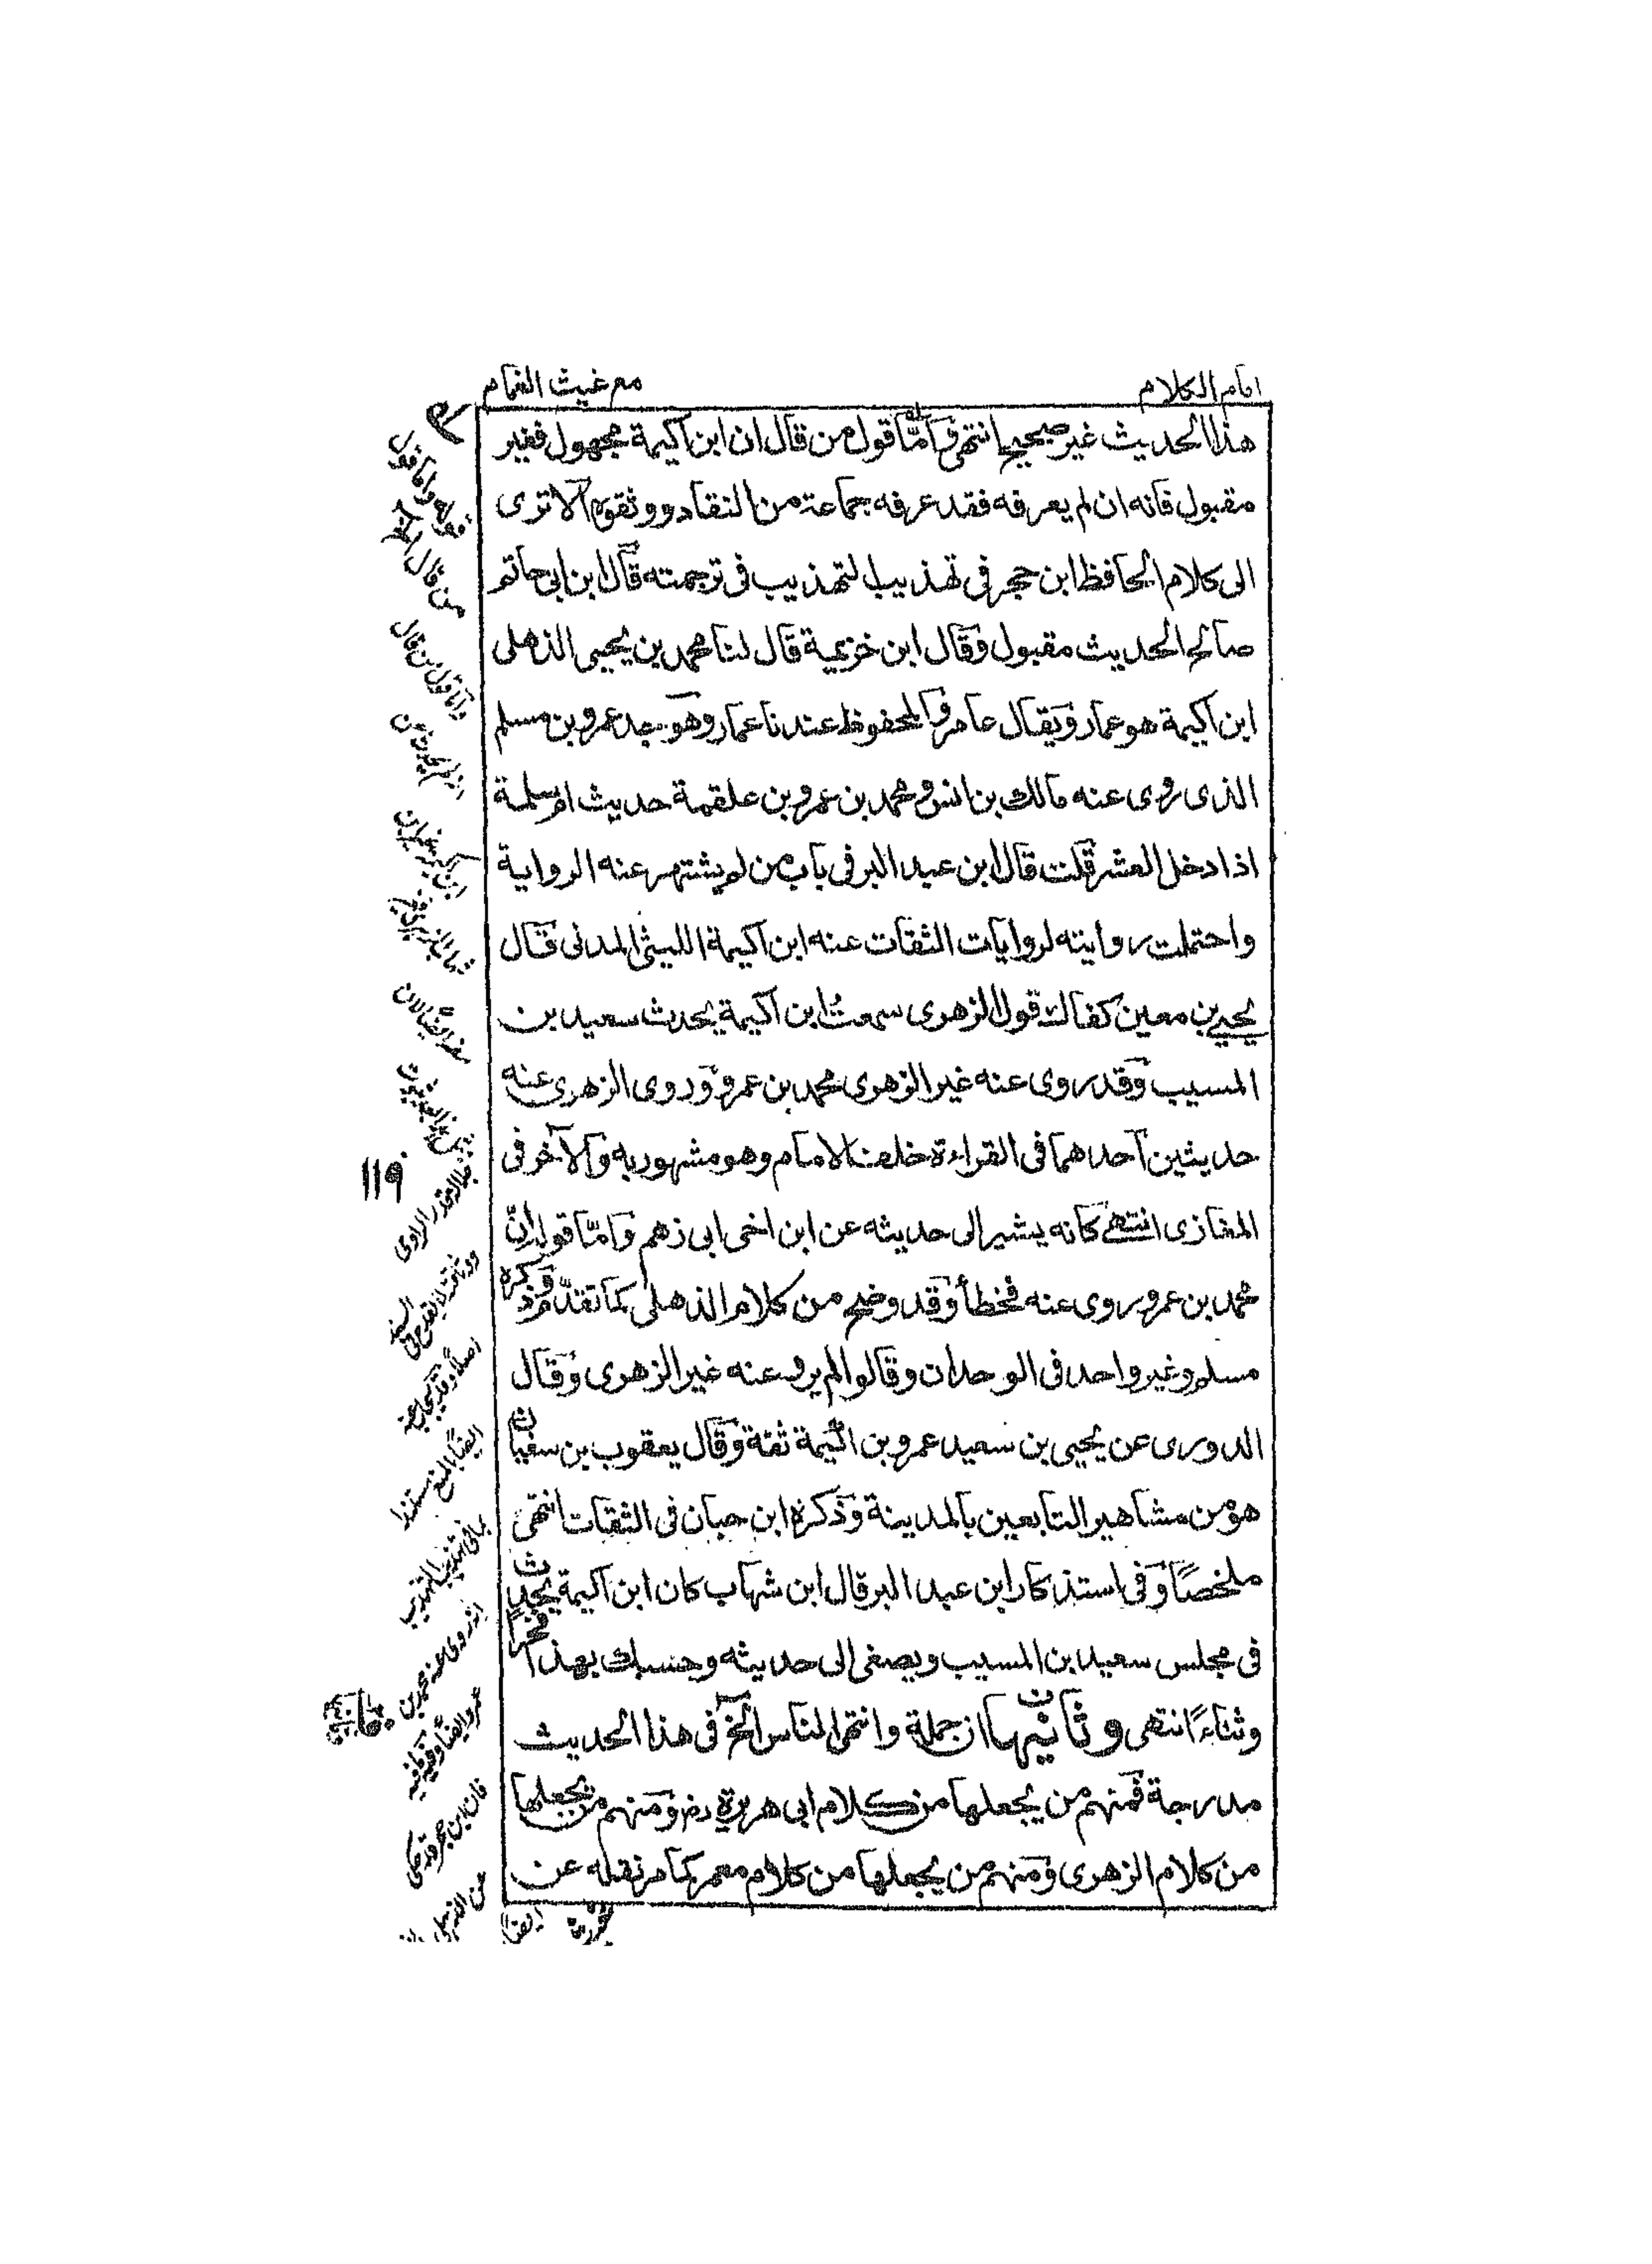 امام الكلام
مع غيث الغمام
هذا الحديث غير صحيح انتهى وامّا قول من قال ان ابن اكيمة مجهول فغير
مقبول فانه ان لم يعرفه فقد عرفه جماعة من النقاد ووثقوه الا ترى
الى كلام الحافظ ابن حجر فى تهذيب التهذيب فى ترجمته قال ابن ابى حاتم
صالح الحديث مقبول وقال ابن خزيمة قال لنا محمد بن يحيى الذهلى
ابن اكيمة هو عمار ويقال عامر والمحفوظ عندنا عمار وهو جد عمرو بن مسلم
الذى روى عنه مالك بن انس ومحمد بن عمرو بن علقمة حديث ام سلمة
اذا دخل العشر قلت قال ابن عبد البر فى باب من لم يشتهر عنه الرواية
واحتملت روايته لروايات الثقات عنه ابن اكيمة الليثى المدنى قال
يحيى بن معين كفاك قول الزهرى سمعتُ ابن اكيمة يحدث سعيد بن
المسيب وقد روى عنه غير الزهرى محمد بن عمرو وروى الزهرى عنه
حديثين احدهما فى القراءة خلف الامام وهو مشهور به والآخر فى
المغازى انتهى كانه يشير الى حديثه عن ابن اخى ابى رهم وامّا قوله انّ
محمد بن عمرو روى عنه فخطأ وقد وضح من كلام الذهلى كما تقدّم وذكره
مسلم وغير واحد فى الوحدان وقالوا لم يرو عنه غير الزهرى وقال
الدورى عن يحيى بن سعيد عمرو بن اكيمة ثقة وقال يعقوب بن سفيان
هو من مشاهير التابعين بالمدينة وذكره ابن حبان فى الثقات انتهى
ملخصًا وفى استذكار ابن عبد البر قال ابن شهاب كان ابن اكيمة يحدث
فى مجلس سعيد بن المسيب ويصغى الى حديثه وحسبك بهذا فخرًا
وثناءً انتهى وثانيها ان جملة وانتهى الناس الخ فى هذا الحديث
مدرجة فمنهم من يجعلها من كلام ابى هريرة رض ومنهم من يجعلها
من كلام الزهرى ومنهم من يجعلها من كلام معمر كما مر نقله عن
قوله واما قول
من قال الخ
واما قول من قال
١١٩
الراوى
ايضًا المنع مستندا
بما فى تهذيب التهذيب
انه روى عنه محمد بن
عمرو ايضًا وفيه ما فيه
فان ابن حجر قد حكى
عن الذهلى
ايضًا